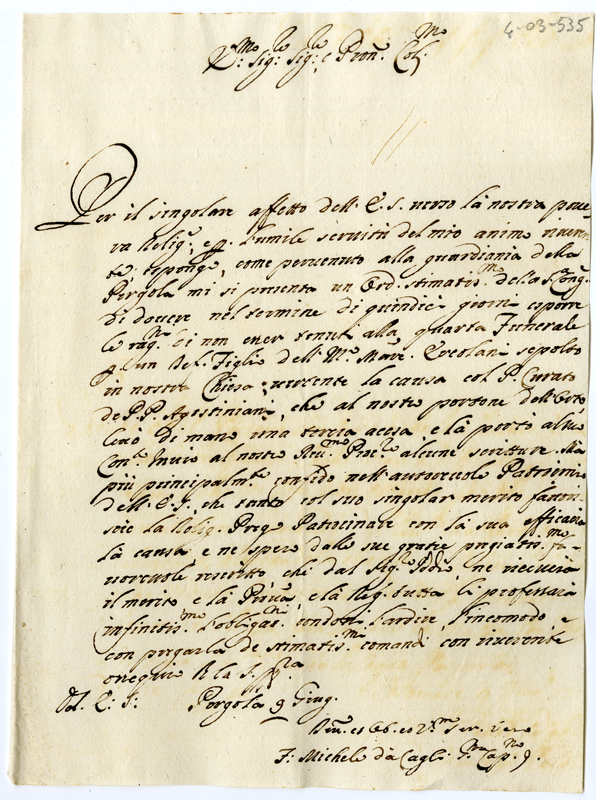 4-03-535
Sig: Sig: e Pron. Col.
Per il singolare affetto dell'E. S. verso la nostra pove=
ra Relig. e l'umile servitù del mio animo riveren
te, espongo, come pervenuto alla guardiania della
Pergola mi si presenta un Ord. stimatis.mo della S. Cong.
di dovere nel termine di quindici giorni esporre
le rag.ni di non esser tenuti alla quarta Funerale
un Bel. Figlio dell' M. March. Ercolani sepolto
in nostra Chiesa, vertente la causa col P. Curato
de P.P. Agostiniani, che al nostro portone dell'Orto
levò di mano una torcia accesa e la portò al suo
Con.to Invio al nostro Rev.mo alcune scritture. Ma
più principalm.te confido nell'autorevole Patrocinio
dell'E. S. che tanto col suo singolar merito favori
sce la Relig. Prego Patrocinare con la sua efficacia
la causa e ne spero dalle sue grazie pregiatis.me fa=
vorevole rescritto, che dal Sig.e Iddio, ne riceverà
il merito e la Prov.a, e la Rag. tutta li professarà
infinitis.mo l'obligaz. condoni l'ardire, l'incomodo, e
con pregarla de stimatis.mi comandi, con riverente
ossequio
Dell' E. S: Pergola 9 Giug.
Ser. vero
F: Michele da Cagli Cap.no